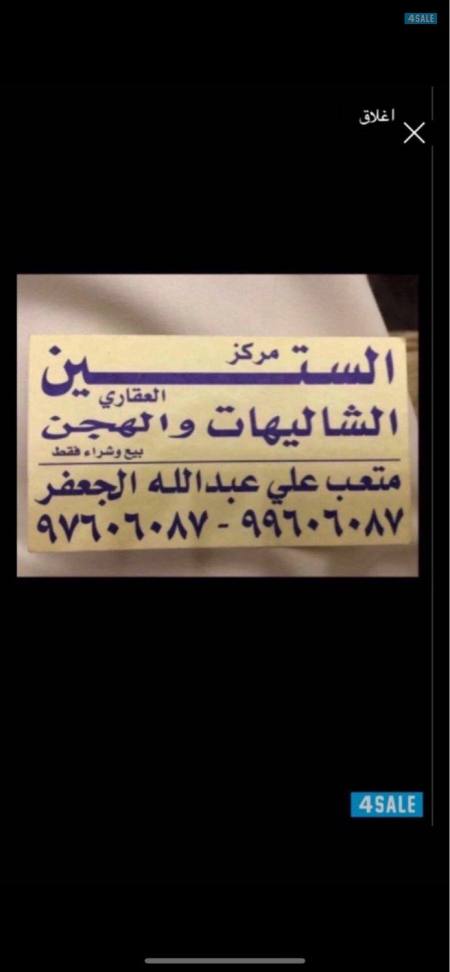 4SALE
اغلاق
مركز
الستين
العقاري
الشاليهات والهجن
بيع وشراء فقط
متعب علي عبدالله الجعفر
٩٩٦٠٦٠٨٧ - ٩٧٦٠٦٠٨٧
4SALE